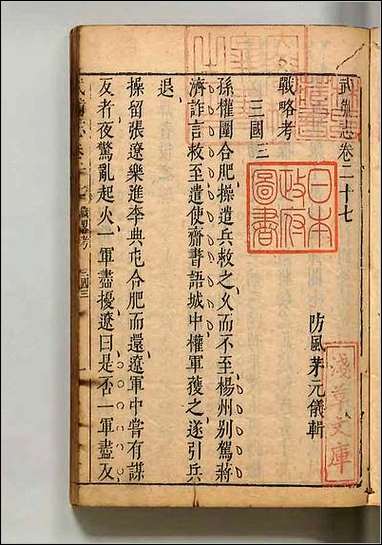 武備志卷二十七
防風茅元儀輯
戰略考
三國三
孫權圍合肥操遣兵救之久而不至楊州别駕蔣
濟詐言救至遣使齎書語城中權軍獲之遂引兵
退
操留張遼樂進李典屯合肥而還遼軍中嘗有謀
反者夜驚亂起火一軍盡擾遼曰是否一軍盡反
日本
政府
圖書
淺草文庫